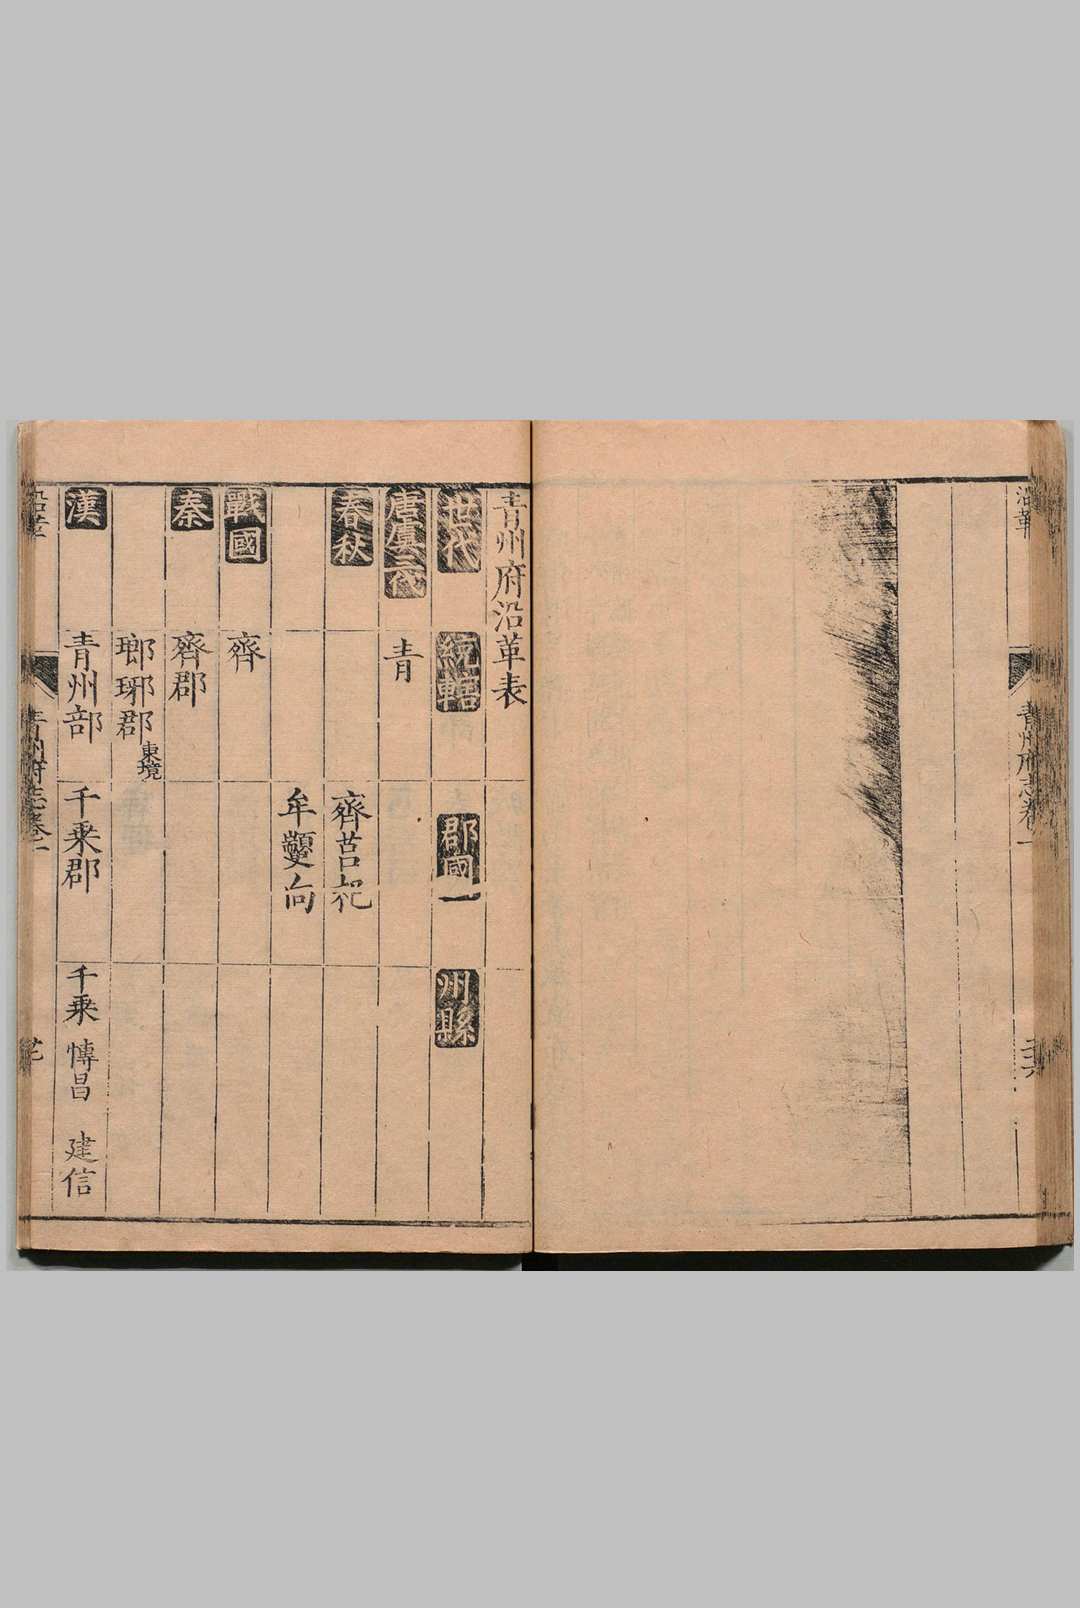 沿革
青州府志卷一
二六
青州府沿革表
世代
統轄
郡國一
州縣
唐虞三代
青
春秋
齊莒杞
牟
向
戰國
齊
秦
齊郡
瑯琊郡東境
漢
青州部
千乘郡
千乘
博昌
建信
沿革
青州府志卷一